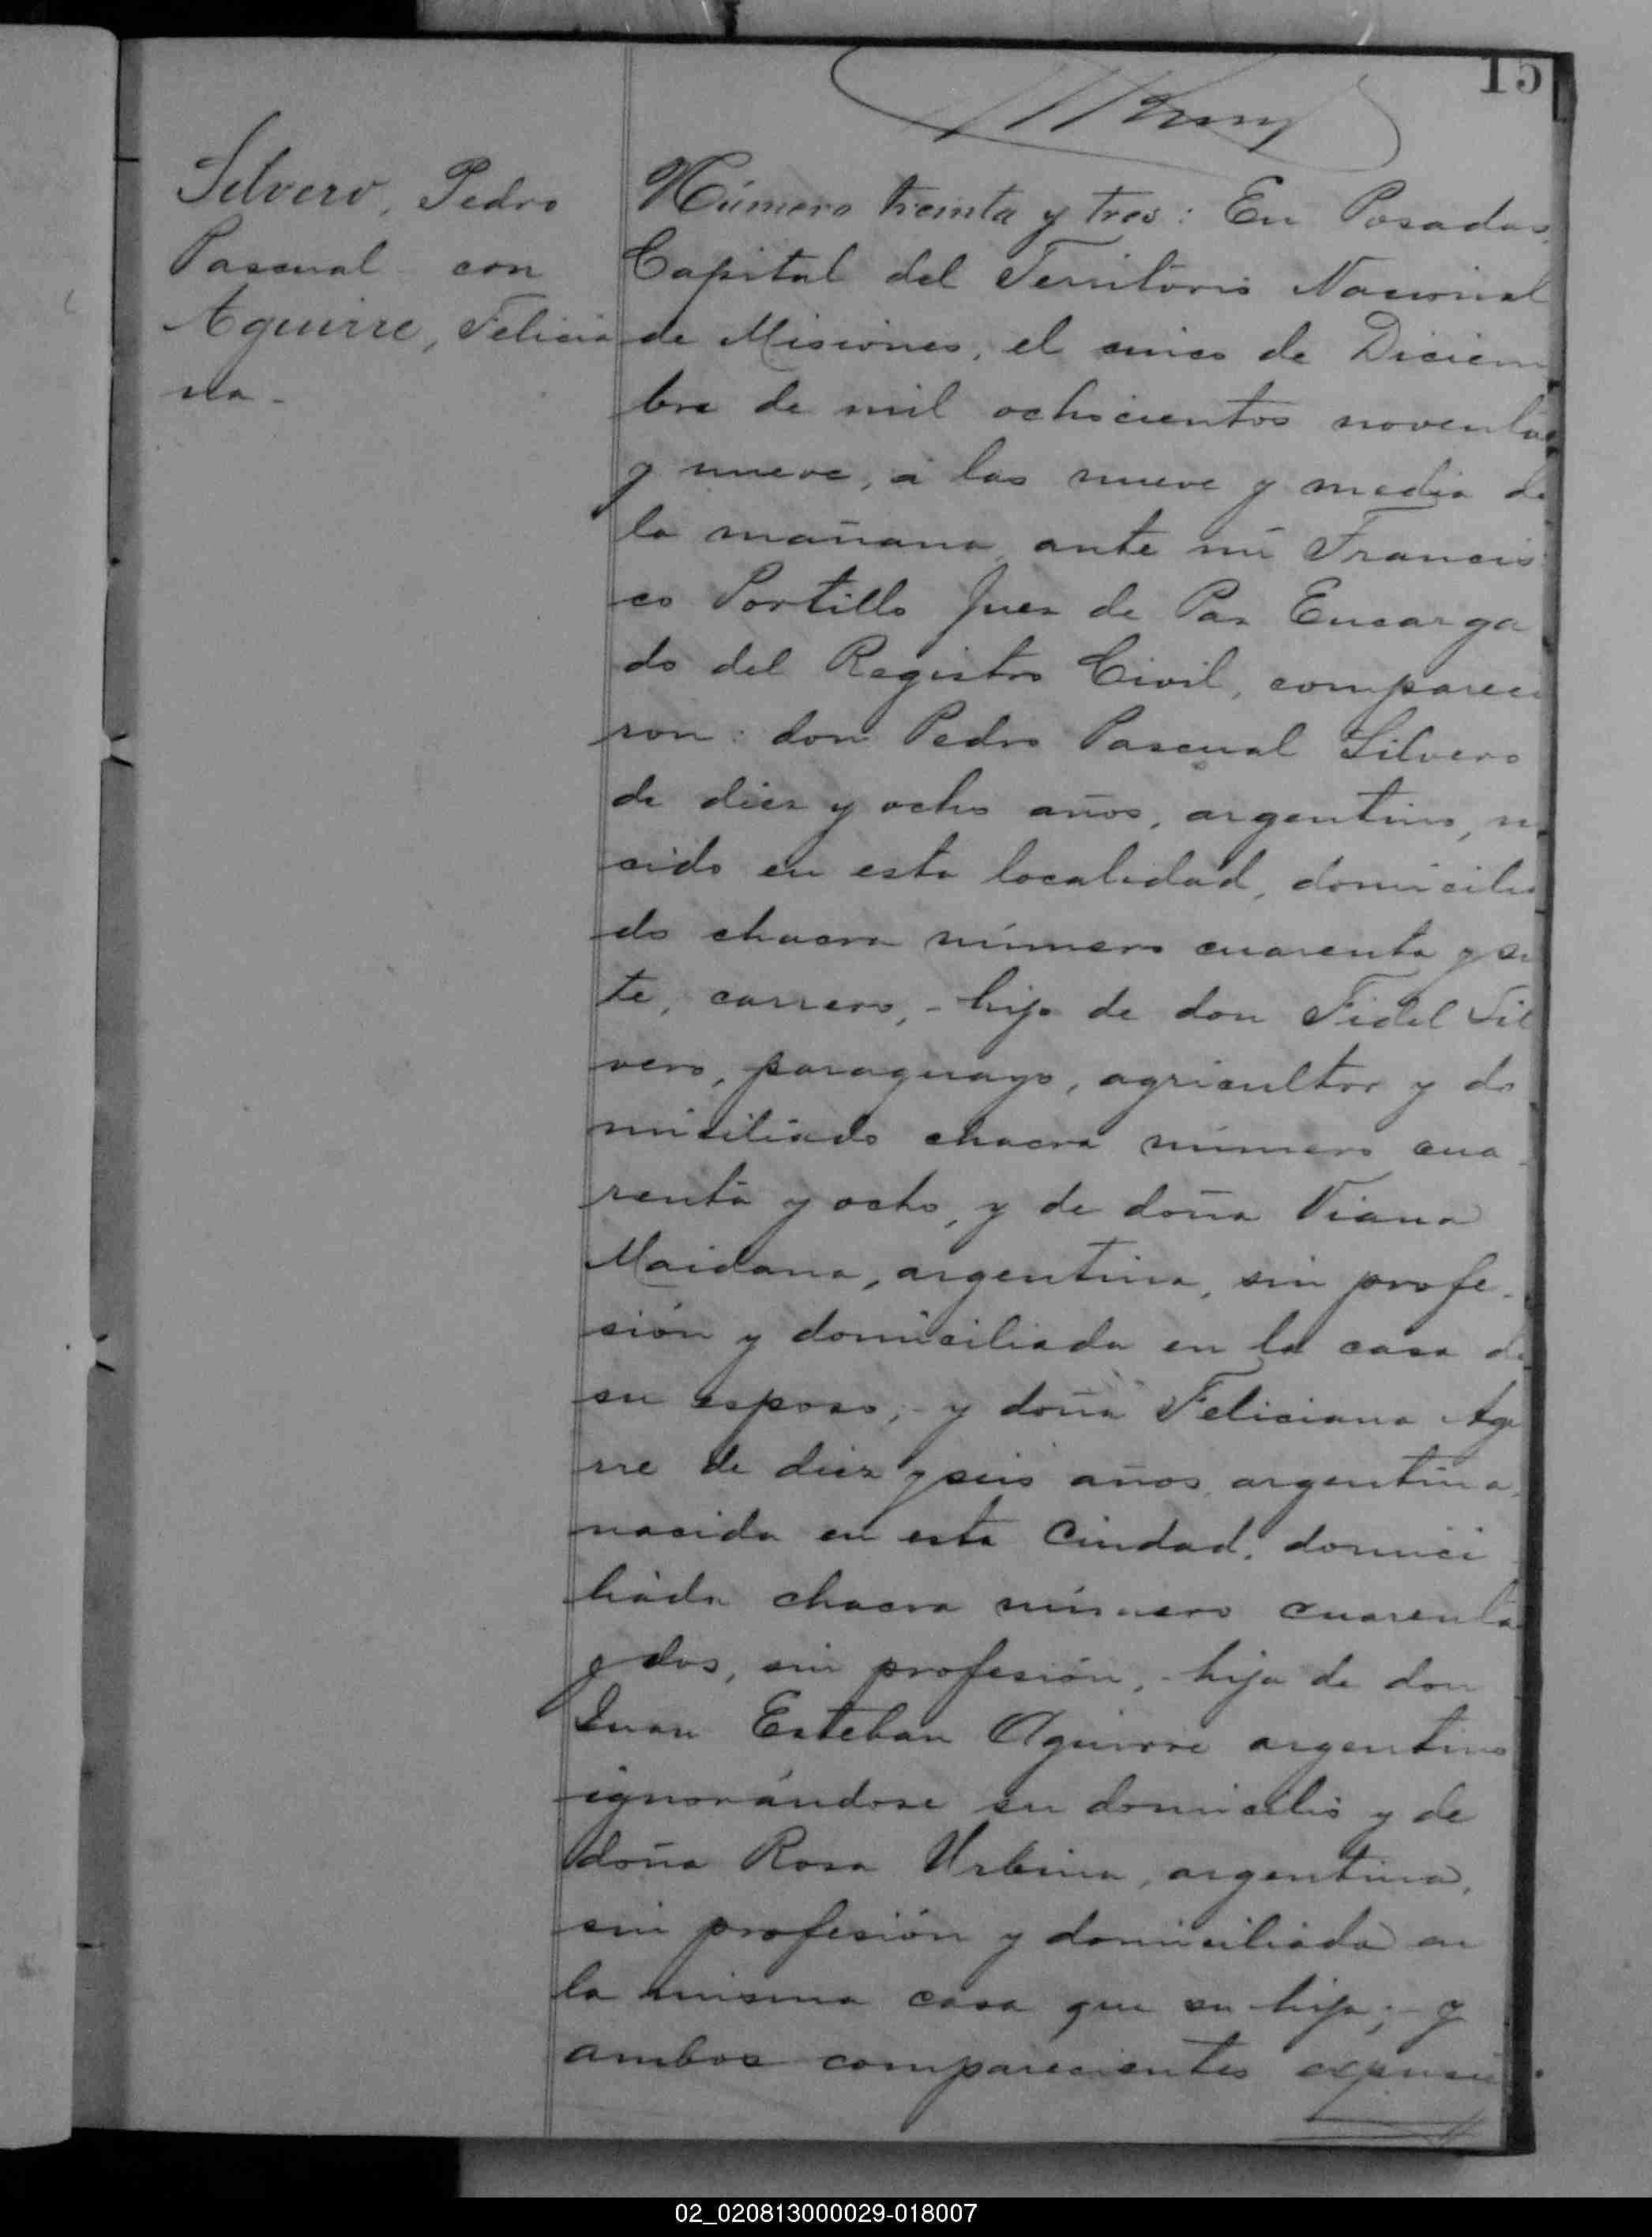 15
Silvero, Pedro
Pascual con
Aguirre, Felicia
na.
Número treinta y tres: En Posadas,
Capital del Territorio Nacional
de Misiones, el cinco de Diciem
bre de mil ochocientos noventa
y nueve, á las nueve y media de
la mañana, ante mí Francis
co Portillo Juez de Paz Encarga
do del Registro Civil, comparecie
ron: don Pedro Pascual Silvero
de diez y ocho años, argentino, na
cido en esta localidad, domicilia
do chacra número cuarenta y sie
te, carrero, - hijo de don Fidel Sil
vero, paraguayo, agricultor y do
miciliado chacra número cua
renta y ocho, y de doña Viana
Maidana, argentina, sin profe-
sión y domiciliada en la casa de
su esposo; - y doña Feliciana Agui
rre de diez y seis años, argentina,
nacida en esta Ciudad, domici
liada chacra número cuarenta
y dos, sin profesión, - hija de don
Juan Esteban Aguirre argentino
ignorándose su domicilio y de
doña Rosa Urbina, argentina,
sin profesión y domiciliada en
la misma casa que su hija; - y
ambos comparecientes expusie
02_020813000029-018007